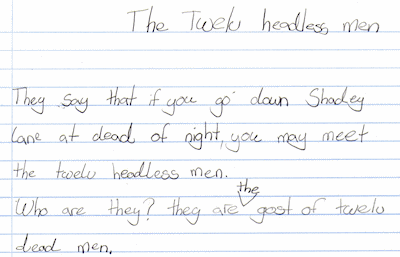 The Twelv headless men
They say that if you go down Shadey
lane at dead of night, you may meet
the twelv headless men.
Who are they? they are the gost of twelv
dead men.